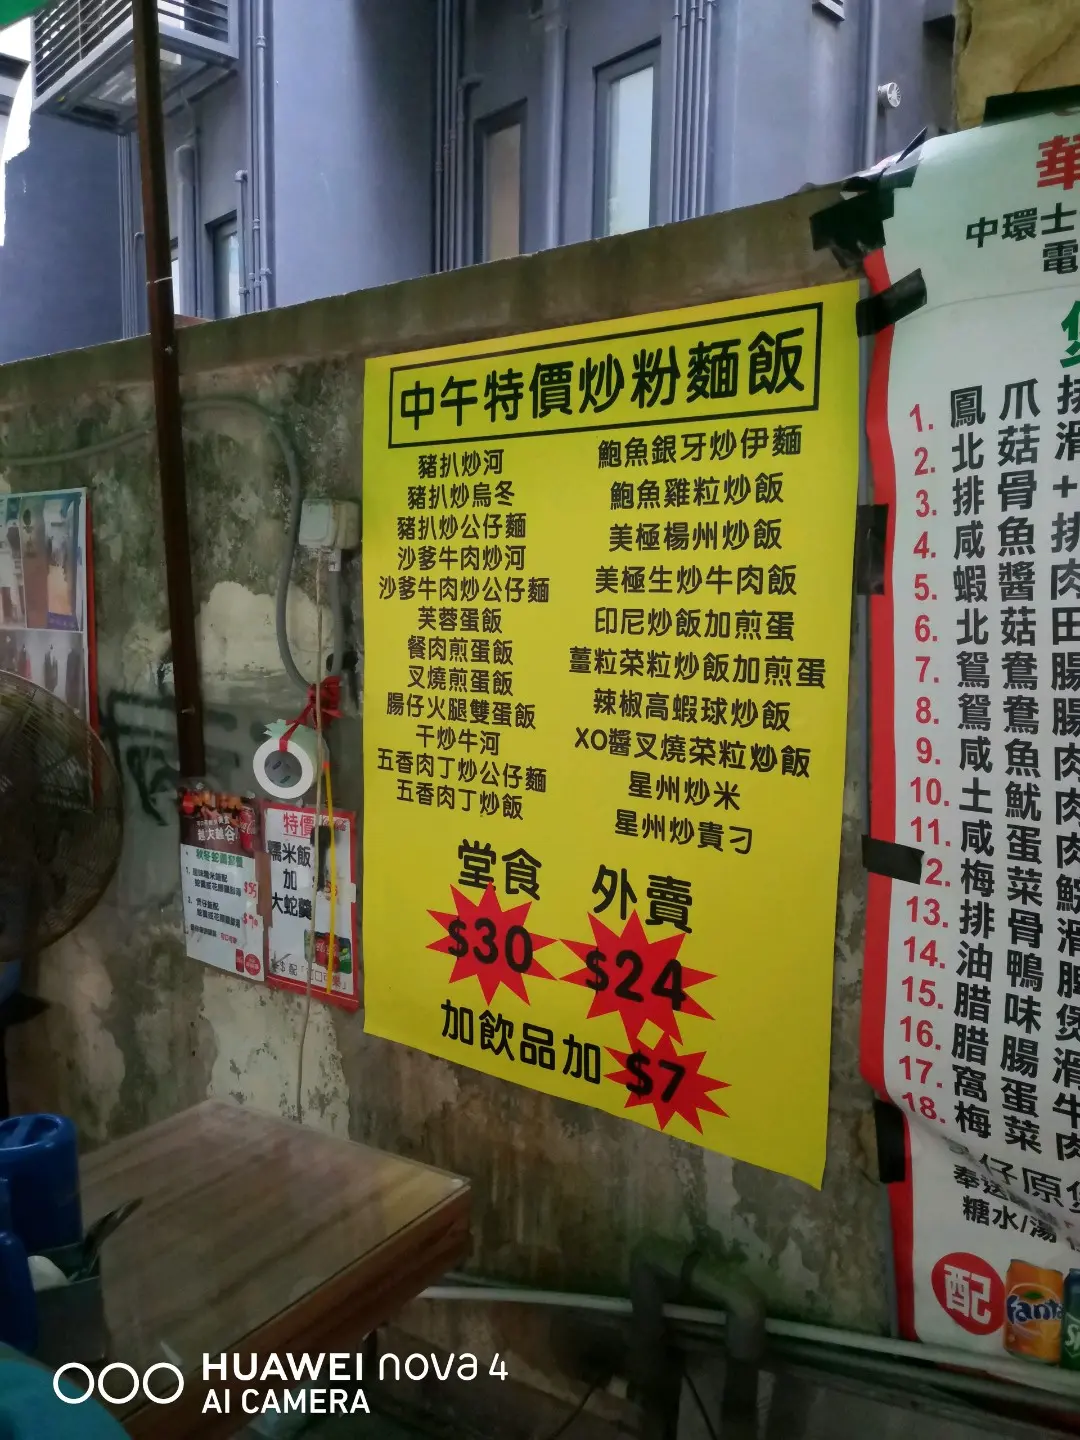 中午特價炒粉麵飯
豬扒炒河
豬扒炒烏冬
豬扒炒公仔麵
沙爹牛肉炒河
沙爹牛肉炒公仔麵
芙蓉蛋飯
餐肉煎蛋飯
叉燒煎蛋飯
腸仔火腿雙蛋飯
干炒牛河
五香肉丁炒公仔麵
五香肉丁炒飯
鮑魚銀牙炒伊麵
鮑魚雞粒炒飯
美極楊州炒飯
美極生炒牛肉飯
印尼炒飯加煎蛋
薑粒菜粒炒飯加煎蛋
辣椒高蝦球炒飯
XO醬叉燒菜粒炒飯
星州炒米
星州炒貴刁
堂食 外賣
$30 $24
加飲品加 $7
特價
糯米飯
加
大蛇羹
華
中環士
電
1. 鳳爪排
2. 北菇滑
3. 排骨+
4. 咸魚排
5. 蝦醬肉
6. 北菇田
7. 鴛鴦腸
8. 鴛鴦腸
9. 咸魚肉
10. 土魷肉
11. 咸蛋肉
12. 梅菜
13. 排骨滑
14. 油鴨
15. 腊味煲
16. 腊腸滑
17. 窩蛋牛
18. 梅菜肉
仔原
奉送
糖水/湯
配
Fanta
HUAWEI nova 4
AI CAMERA